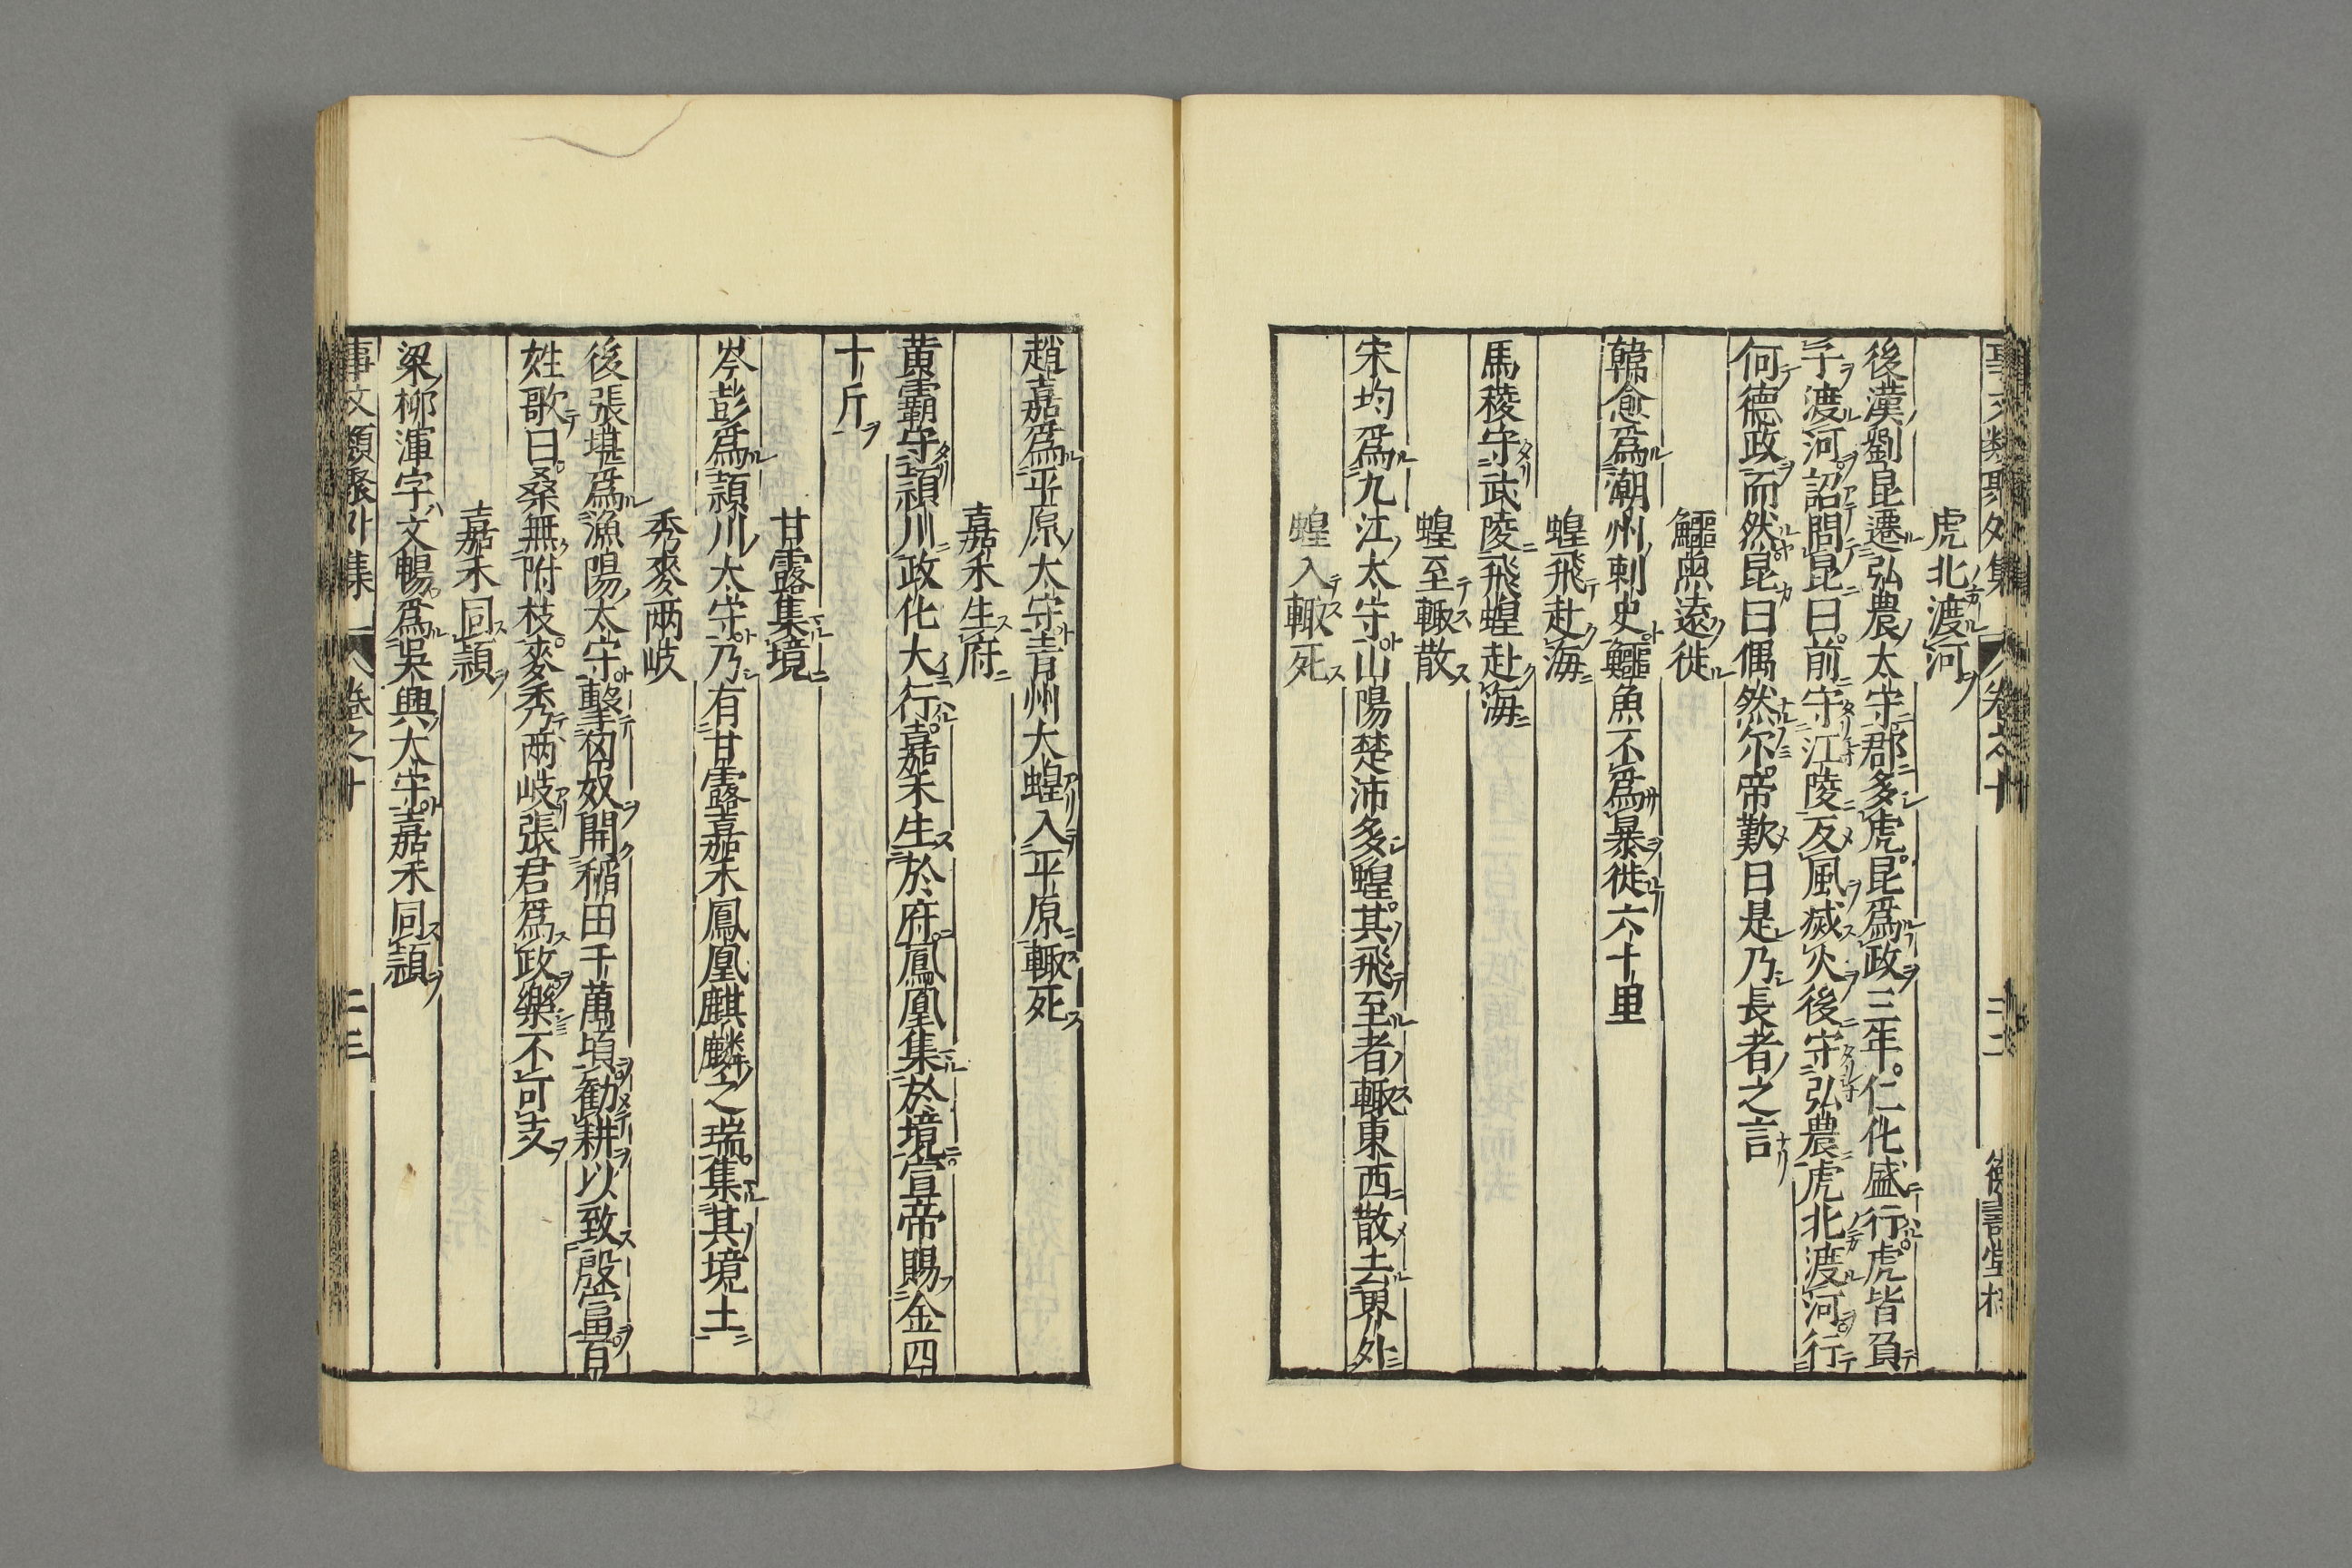 事文類聚外集 卷之十 三十二
虎北渡河
後漢劉昆遷弘農太守郡多虎昆爲政三年仁化盛行虎皆負
子渡河詔問昆曰前守江陵反風滅火後守弘農虎北渡河行
何德政而然昆曰偶然尔帝歎曰是乃長者之言
鱷魚遠徙
韓愈爲潮州刺史鱷魚不爲暴徙六十里
蝗飛赴海
馬稜守武陵飛蝗赴海
蝗至輙散
宋均爲九江太守山陽楚沛多蝗其飛至者輙東西散去界外
蝗入輙死
趙嘉爲平原太守青州大蝗入平原輙死
嘉禾生府
黄霸守潁川政化大行嘉禾生於府鳳凰集於境宣帝賜金四
十斤
甘露集境
岑彭爲潁川太守乃有甘露嘉禾鳳凰麒麟之瑞集其境土
秀麥两岐
後張堪爲漁陽太守擊匈奴開稲田千萬頃勸耕以致殷富百
姓歌曰桑無附枝麥秀两岐張君爲政樂不可支
嘉禾同穎
梁柳渾字文暢爲吳興太守嘉禾同穎
事文類聚外集 卷之十